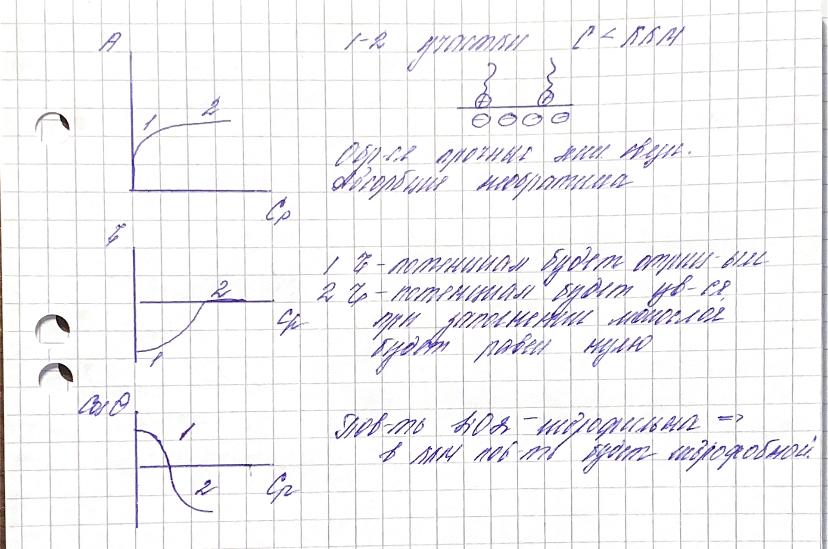 A
1
2
Cр
1-2 участки C < ККМ
Обр-ся прочные хим. связи.
Адсорбция необратима
ξ
1
2
Cр
1 ξ-потенциал будет отриц-ым
2 ξ-потенциал будет ув-ся,
при заполнении монослоя
будет равен нулю
Cos θ
1
2
Cр
Пов-ть - гидрофильна =>
в ККМ пов-ть будет гидрофобной.